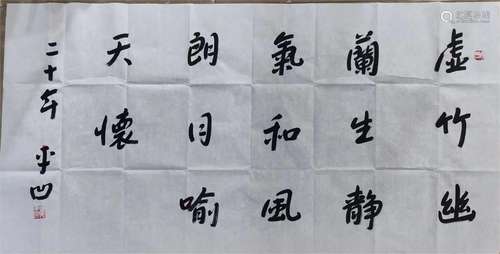 虚竹幽
蘭生静
氣和風
朗月喻
天懷
二十年 平凹